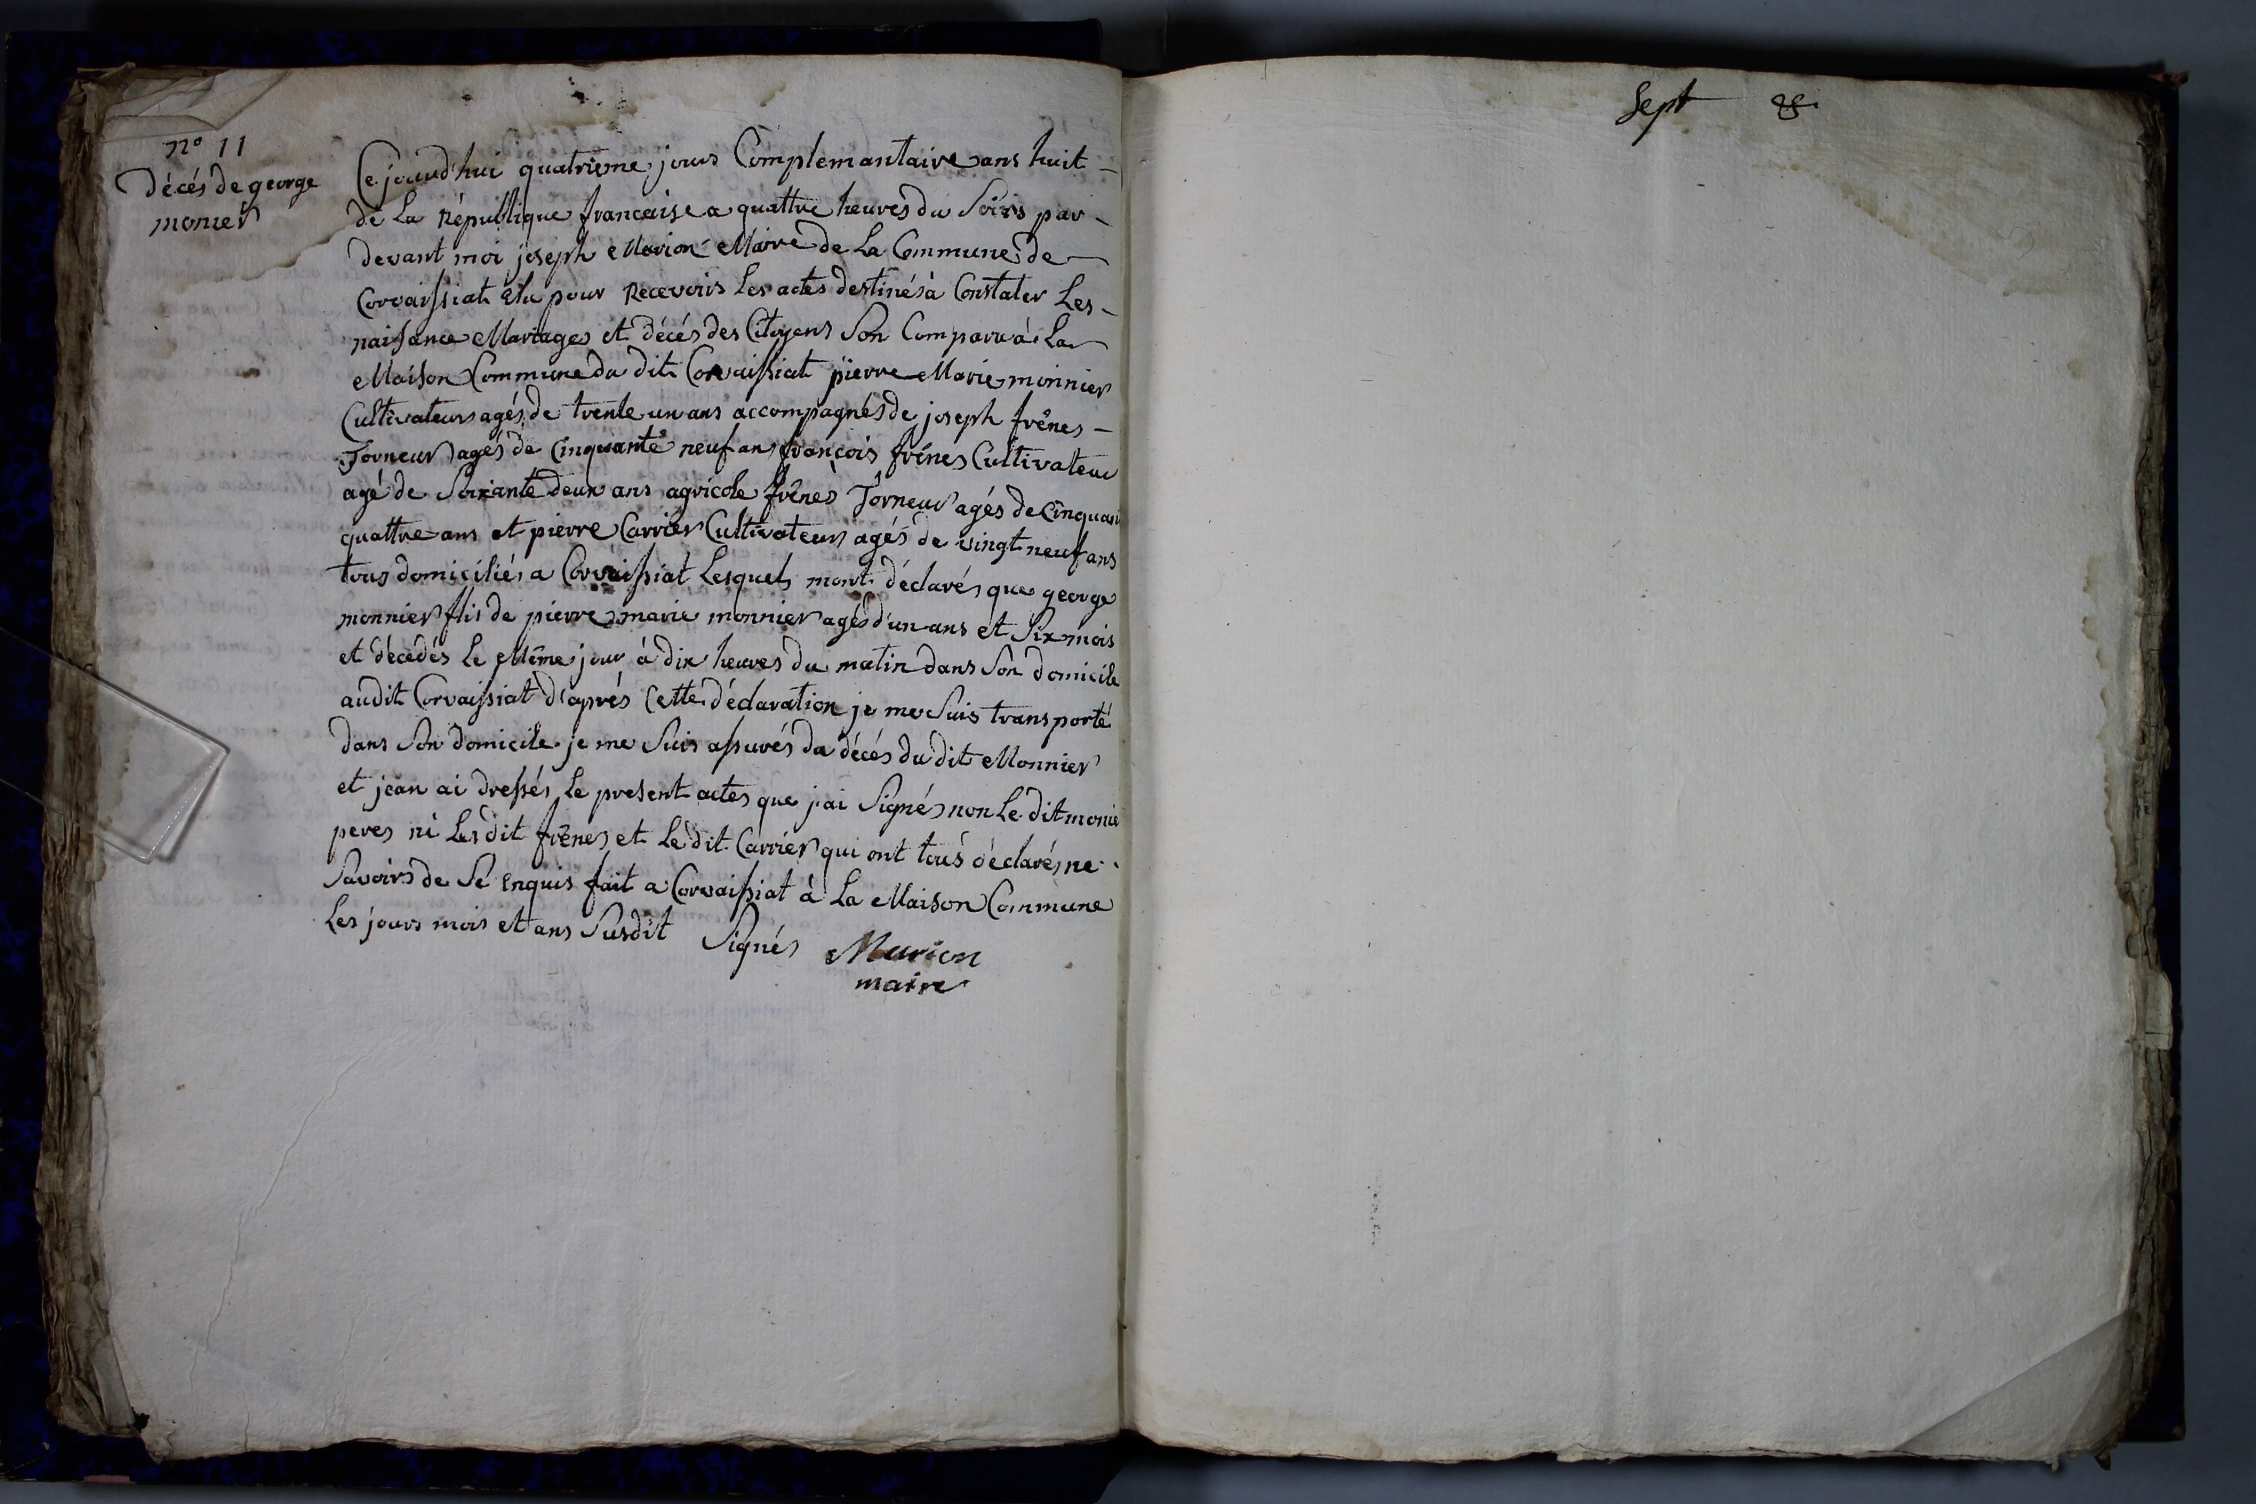 n° 11
Décés de george
monier
Ce jourd'hui quatrieme jours Complemantaire ans huit –
de La République francaise a quattre heures du Soirs par –
devant moi joseph Marion Maire de La Commune de –
Corvaissiat élu pour Recevoirs Les actes destinés à Constater Les –
naissance Mariages et décés des Citoyens Son Comparu à La
Maison Commune du dit Corvaissiat pierre Marie monnier
Cultivateurs agés de trente un ans accompagnés de joseph frênes –
Torneur agés de Cinquante neuf ans françois frênes Cultivateur
agé de Soixante deux ans agricole frênes Torneur agés de Cinquan
quattre ans et pierre Carrier Cultivateurs agés de vingt neuf ans
tous domiciliés a Corvaissiat Lesquels mont déclarés que george
monnier flis de pierre marie monnier agés d'un ans et Six mois
et décédés Le Même jour à dix heures du matin dans Son domicile
audit Corvaissiat d'aprés Cette déclaration je me Suis transporté
dans Son domicile je me Suis assurés du décés du dit Monnier
et jean ai dressés Le present actes que jai Signés non Le dit monie
peres ni Les dit frênes et Le dit Carrier qui ont tous déclarés ne
Savoirs de Se enquis fait a Corvaissiat à La Maison Commune
Les jours mois et ans Susdit Signés Marion
maire
Sept